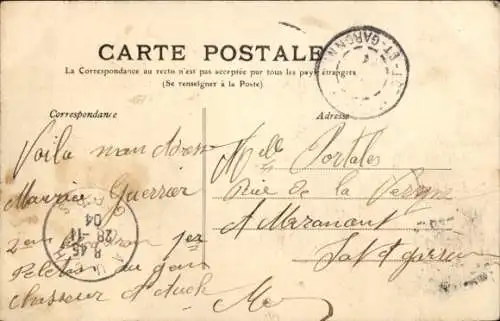 CARTE POSTALE
La Correspondance au recto n'est pas acceptée par tous les pays étrangers
(Se renseigner à la Poste)
Correspondance
Adresse
Voila mon adresse
Maurice Guerrier
2em 1er
Peloton au
chasseur d'Auch
Melle Portales
Rue de la
A
Tarn et Garonne
ET-GARONNE
AUCH
8 45
28 -11
04